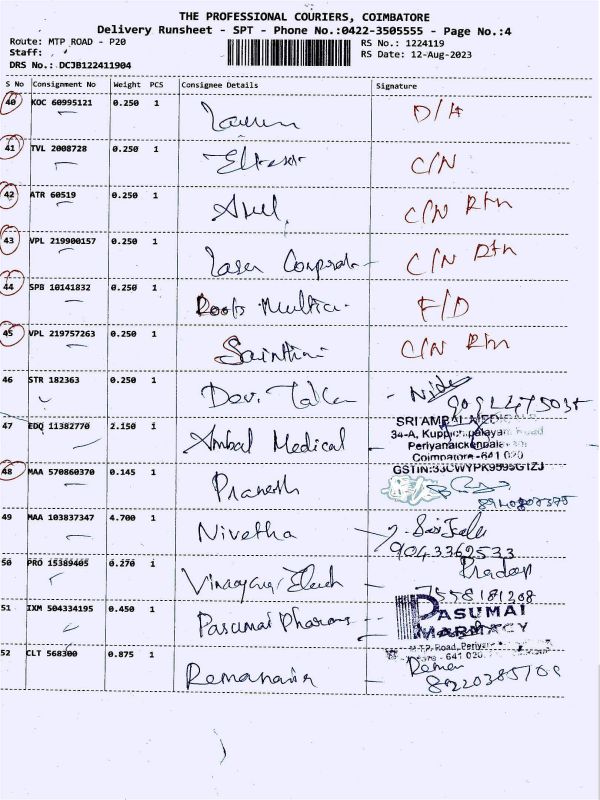 THE PROFESSIONAL COURIERS, COIMBATORE
Delivery Runsheet - SPT - Phone No.:0422-3505555 - Page No.:4
Route: MTP ROAD - P20 RS No.: 1224119
Staff: RS Date: 12-Aug-2023
DRS No.: DCJB122411904
S No Consignment No Weight PCS Consignee Details Signature
40 KOC 60995121 0.250 1 D/H
41 TVL 2008728 0.250 1 C/N
42 ATR 60519 0.250 1 Arul C/N Rtn
43 VPL 219900157 0.250 1 Laser Corporat C/N Rtn
44 SPB 10141832 0.250 1 Roots Multi F/D
45 VPL 219757263 0.250 1 C/N Rtn
46 STR 182363 0.250 1 Devi
47 EDQ 11382770 2.150 1 Ambal Medical
SRI AMBAL MEDICALS
34-A, Road
Coimbatore - 641 020
48 MAA 570860370 0.145 1 Pranesh
49 MAA 103837347 4.700 1 Nivetha
9043362533
50 PRO 15389405 0.270 1 Pradeep
7558181208
51 IXM 504334195 0.450 1 Pasumai Pharma
PASUMAI
MARMACY
M.T.P. Road,
641 020
52 CLT 568300 0.875 1 Raman